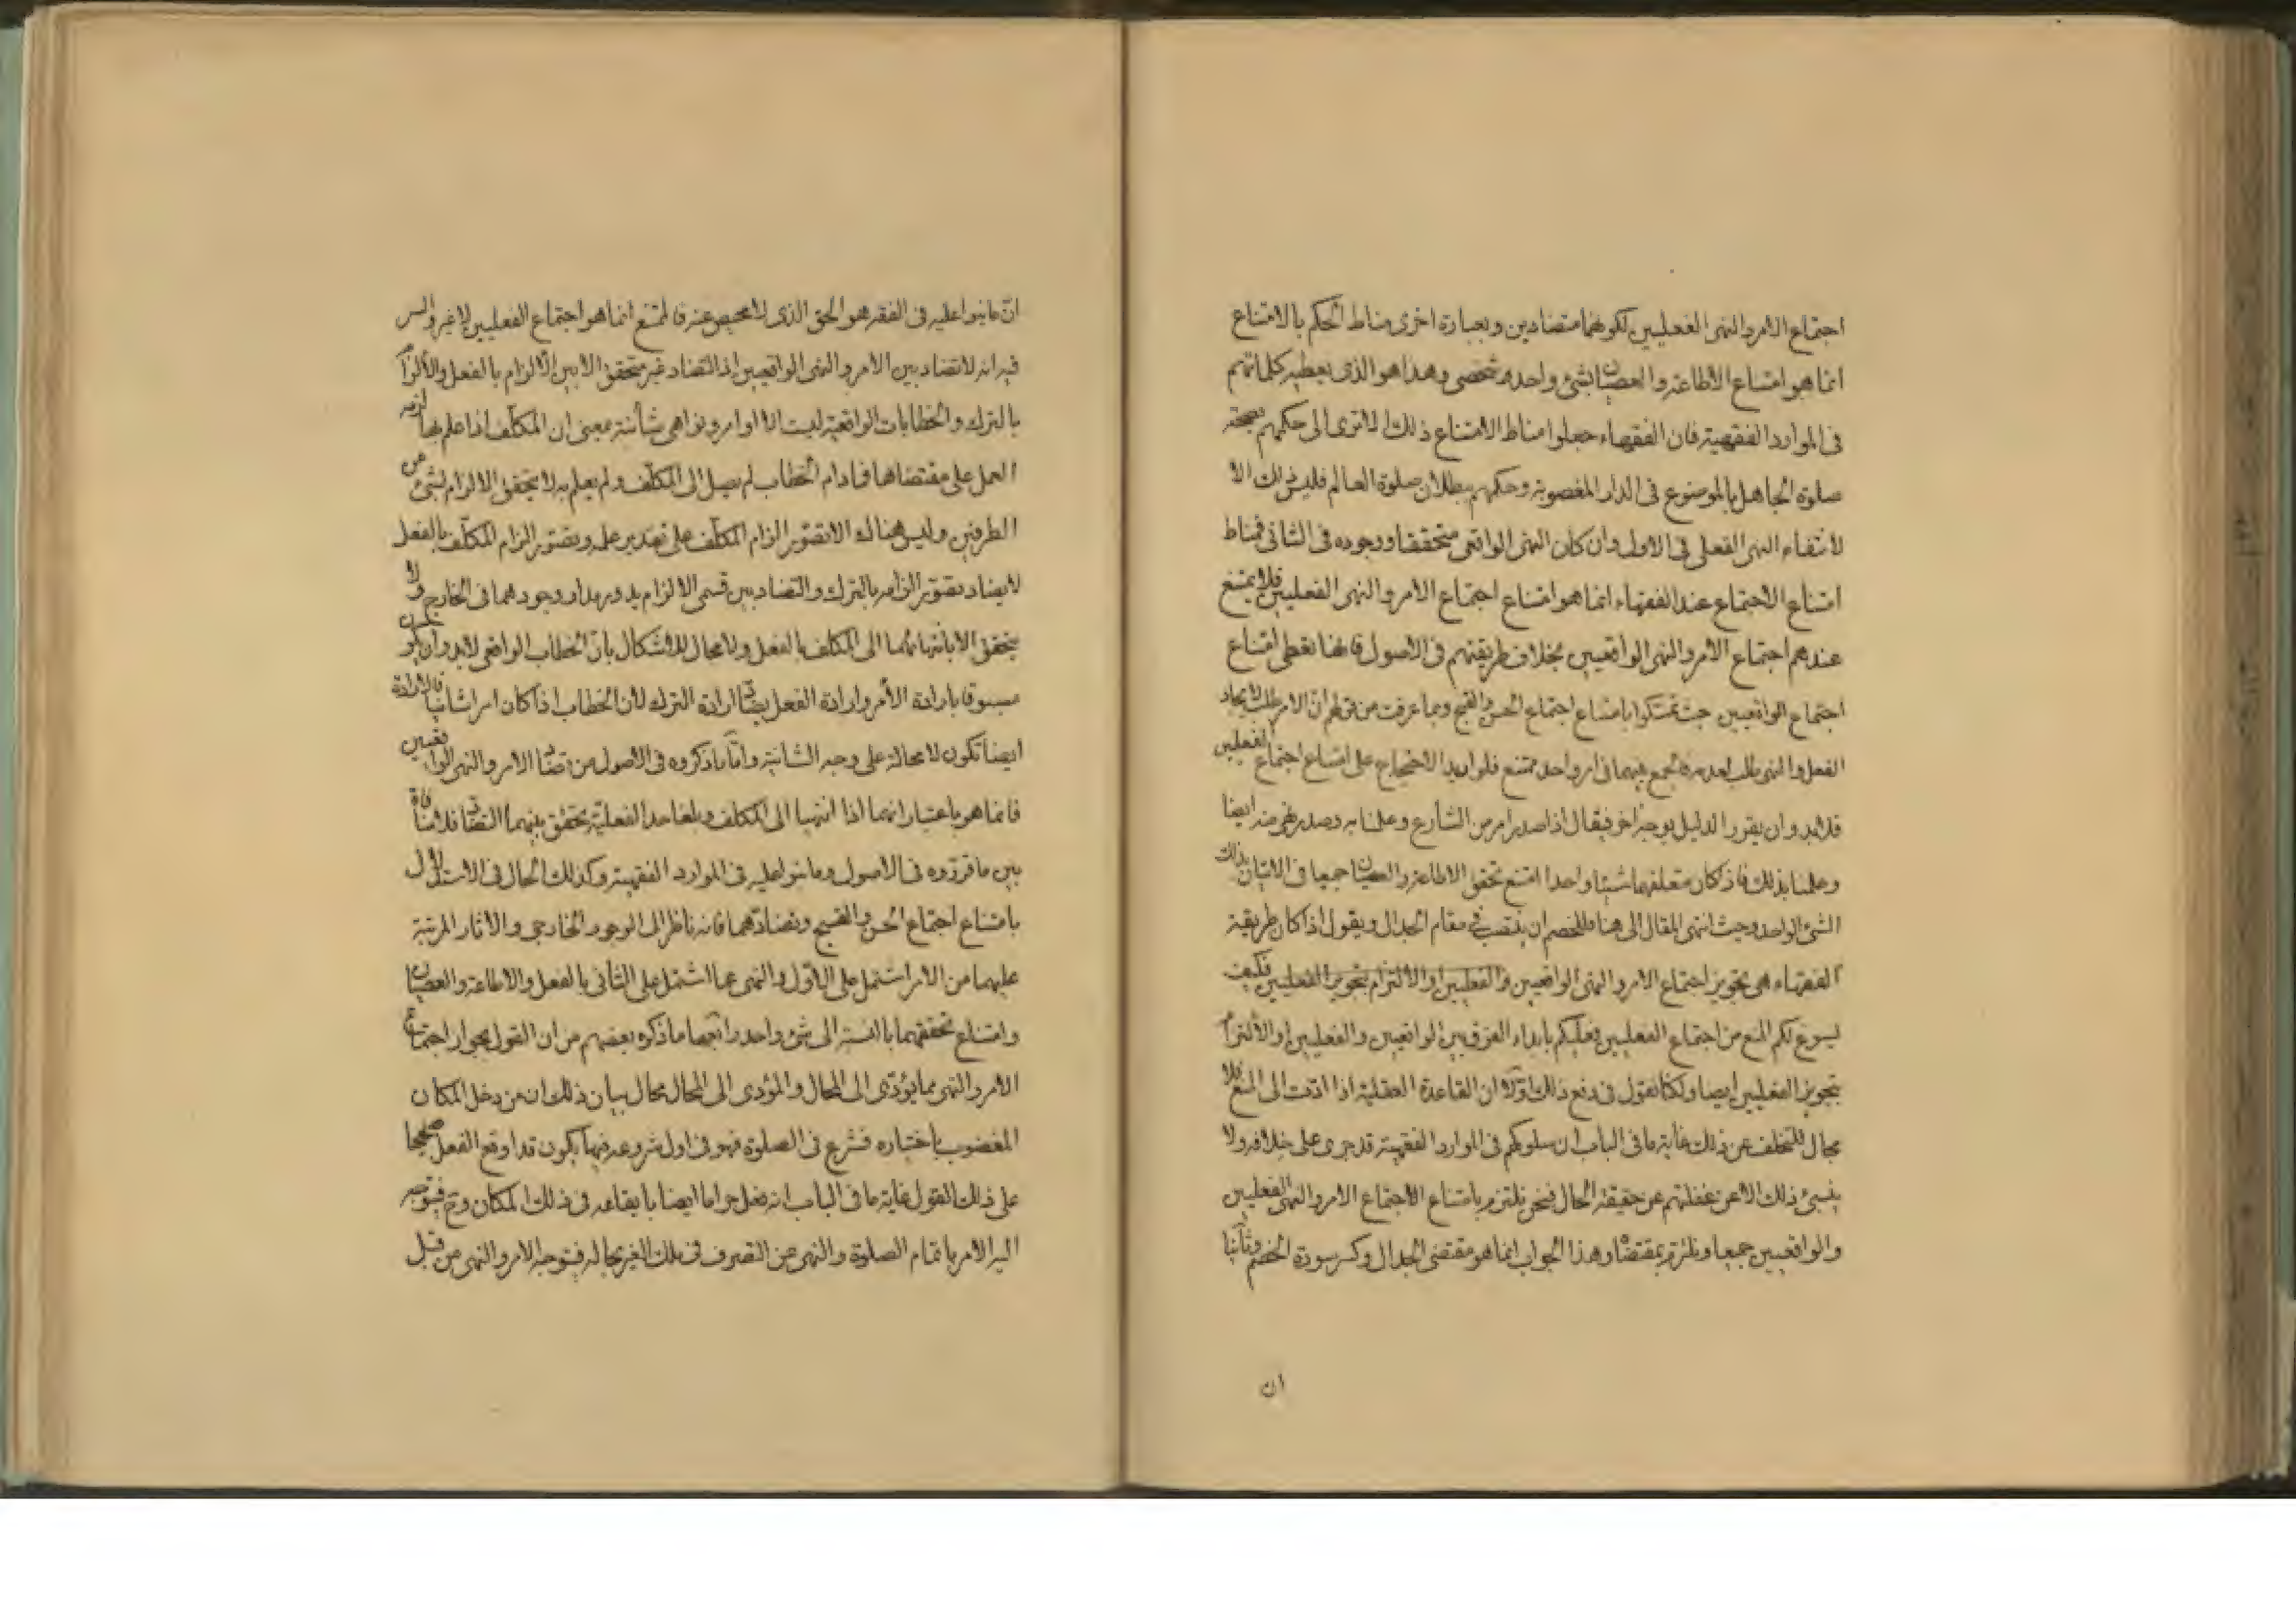 اجتماع الامر والنهى الفعليين لكونهما متضادين وبعبارة اخرى مناط الحكم بالامتناع
انما هو امتناع الاطاعة والعصيان بشئ واحد شخصى وهذا هو الذى يعطيه كلماتهم
فى الموارد الفقهية فان الفقهاء جعلوا مناط الامتناع ذلك الا ترى الى حكمهم بصحة
صلوة الجاهل بالموضوع فى الدار المغصوبة وحكمهم ببطلان صلوة العالم فليس ذلك الا
لانتفاء النهى الفعلى فى الاول وان كان النهى الواقعى متحققا ووجوده فى الثانى فمناط
امتناع الاجتماع عند الفقهاء انما هو امتناع اجتماع الامر والنهى الفعليين فلا يمتنع
عندهم اجتماع الامر والنهى الواقعيين بخلاف طريقتهم فى الاصول فانها تعطى امتناع
اجتماع الواقعيين حيث تمسكوا بامتناع اجتماع الحسن والقبح وبما عرفت من قولهم ان الامر طلب لايجاد
الفعل والنهى طلب لعدمه فالجمع بينهما فى امر واحد ممتنع فلو اريد الاحتجاج على امتناع اجتماع الفعليين
فلابد وان يقرر الدليل بوجه اخر فيقال اذا صدر امر من الشارع وعلمنا به وصدر نهى منه ايضا
وعلمنا بذلك فاذا كان متعلقهما شيئا واحدا امتنع تحقق الاطاعة والعصيان جميعا فى الاتيان بذلك
الشئ الواحد وحيث انتهى المقال الى هنا فللخصم ان ينتصب فى مقام الجدال ويقول اذا كان طريقة
الفقهاء هى تجويز اجتماع الامر والنهى الواقعيين والفعليين او الالتزام بتجويز الفعليين فكيف
يسوغ لكم المنع من اجتماع الفعليين فعليكم بابداء الفرق بين الواقعيين والفعليين او الالتزام
بتجويز الفعليين ايضا ولكنا نقول فى دفع ذلك اولا ان القاعدة العقلية اذا ادت الى المنع فلا
مجال للتخلف عن ذلك غاية ما فى الباب ان سلوكهم فى الموارد الفقهية قد جرى على خلافه ولا
ينبئ ذلك الا عن غفلتهم عن حقيقة الحال فنحن نلتزم بامتناع الاجتماع الامر والنهى الفعليين
والواقعيين جميعا ونلتزم بمقتضاه وهذا الجواب انما هو مقتضى الجدال وكسر سورة الخصم وثانيا
ان
ان ما بنوا عليه فى الفقه هو الحق الذى لا محيص عنه فالممتنع انما هو اجتماع الفعليين لا غير والسر
فيه انه لا تضاد بين الامر والنهى الواقعيين اذ التضاد غير متحقق الا بين الالزام بالفعل والالزام
بالترك والخطابات الواقعية ليست الا اوامر ونواهى شأنية بمعنى ان المكلف اذا علم بها لزمه
العمل على مقتضاها فما دام الخطاب لم يصل الى المكلف ولم يعلم به لا يتحقق الالزام لشئ من
الطرفين وليس هناك الا تصور الزام المكلف على تقدير علمه وتصور الزام المكلف بالفعل
لا يضاد تصور الزامه بالترك والتضاد بين قسمى الالزام يدور مدار وجودهما فى الخارج ولا
يتحقق الا بانتهائهما الى المكلف بالفعل ولا مجال للاشكال بان الخطاب الواقعى لابد وان يكون
مسبوقا بارادة الامر وارادة الفعل يضاد ارادة الترك لان الخطاب اذا كان امرا شأنيا فالارادة
ايضا تكون لا محالة على وجه الشأنية واما ما ذكروه فى الاصول من تضاد الامر والنهى الواقعيين
فانما هو باعتبار انهما اذا انتهيا الى المكلف وبلغا حد الفعلية يتحقق بينهما التضاد فلا منافاة
بين ما قرروه فى الاصول وما بنوا عليه فى الموارد الفقهية وكذلك الحال فى الاستدلال
بامتناع اجتماع الحسن والقبح وتضادهما فانه ناظر الى الوجود الخارجى والاثار المرتبة
عليهما من الامر اشتمل على الاول والنهى عما اشتمل على الثانى بالفعل والاطاعة والعصيان
وامتناع تحققهما بالنسبة الى شئ واحد رابعها ما ذكره بعضهم من ان القول بجواز اجتماع
الامر والنهى مما يؤدى الى المحال والمؤدى الى المحال محال بيان ذلك ان من دخل المكان
المغصوب باختياره فشرع فى الصلوة فهو فى اول شروعه فيها يكون قد اوقع الفعل صحيحا
على ذلك القول غاية ما فى الباب انه فعل حراما ايضا بايقاعه فى ذلك المكان وح فيتوجه
اليه الامر باتمام الصلوة والنهى عن التصرف فى ملك الغير بحاله فتوجه الامر والنهى من قبل